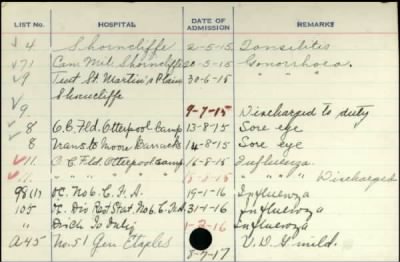 LIST NO. HOSPITAL DATE OF ADMISSION REMARKS
4 Shorncliffe 2-5-15 Tonsilitis
71 Cam Mil. Shorncliffe 20-5-15 Gonorrhoea
9 Tent St. Martin's Plain 30-6-15 " " "
Shorncliffe
9. 9-7-15 Discharged to duty
8 C.C. Fld. Otterpool Camp 13-8-15 Sore eye
8 Trans. to Moore Barracks 14-8-15 Sore eye
11. C.C. Fld. Otterpool Camp 16-8-15 Influenza.
11. " " " " -15 " " Discharged
98(1) No 6. C. F. A. 19-1-16 Influenza
105 Div Rest Stat. No 6. C. F.A. 31-1-16 Influenza
" Disch To Duty 1-2-16 Influenza
A45 No. 51 Gen Etaples 8-7-17 V.D.G. mild.